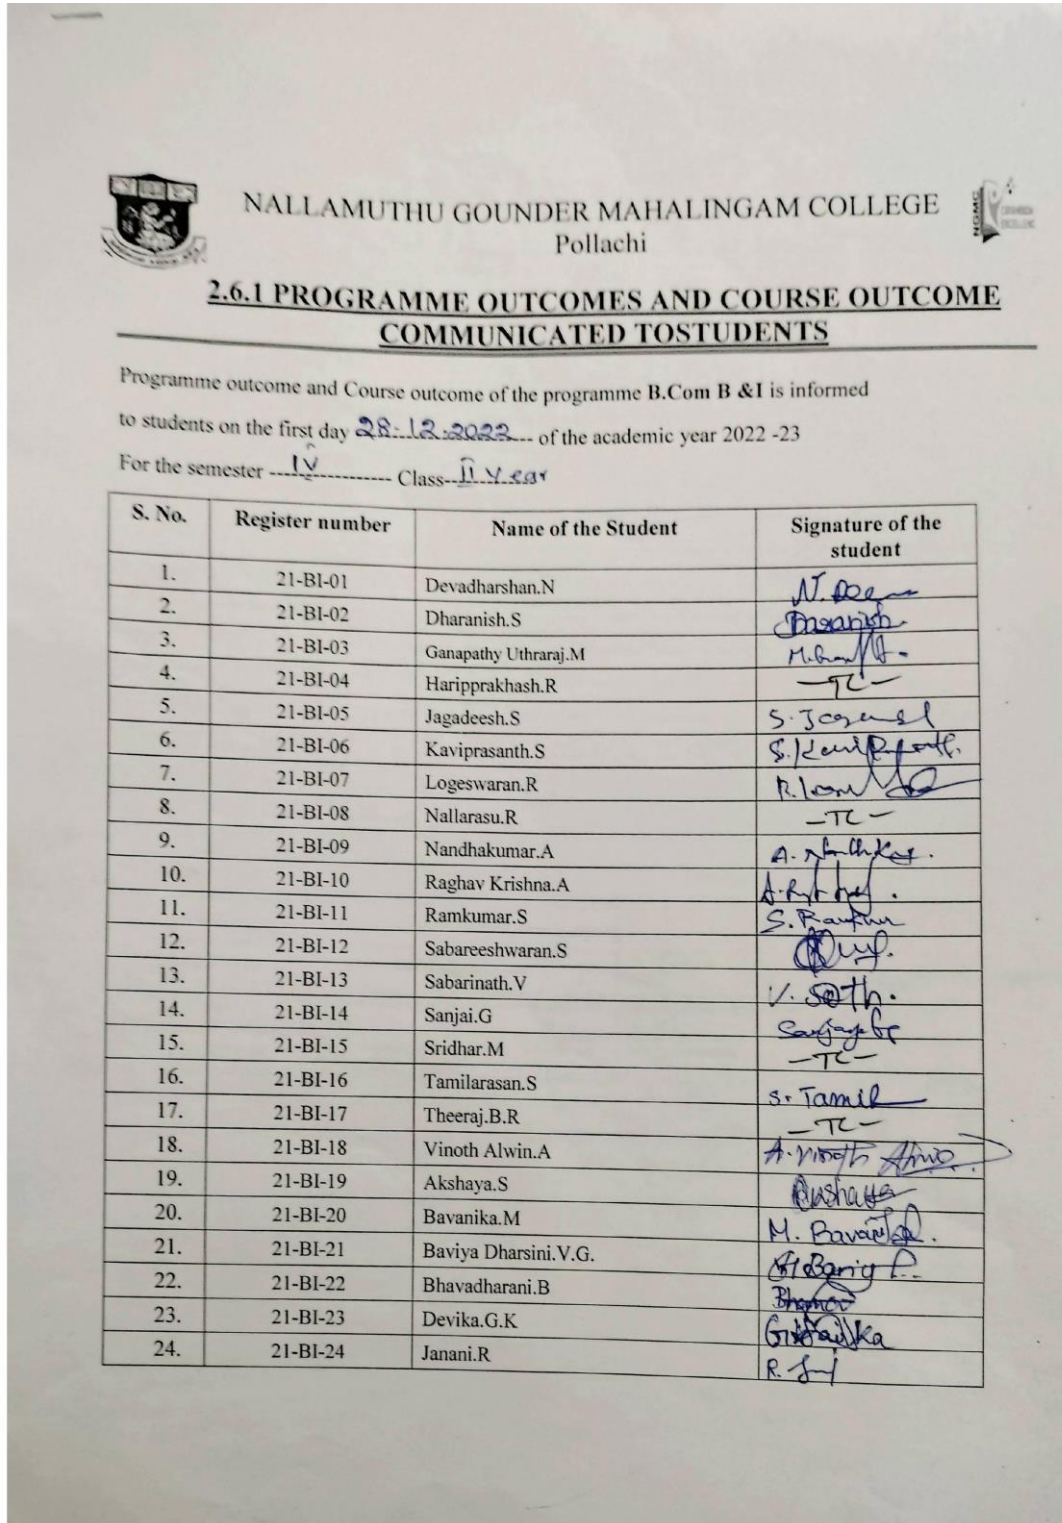 NALLAMUTHU GOUNDER MAHALINGAM COLLEGE
Pollachi
NGMC
2.6.1 PROGRAMME OUTCOMES AND COURSE OUTCOME
COMMUNICATED TOSTUDENTS
Programme outcome and Course outcome of the programme B.Com B &I is informed
to students on the first day 28-12-2022 of the academic year 2022 -23
For the semester IV Class II Year
S. No. Register number Name of the Student Signature of the
student
1. 21-BI-01 Devadharshan.N
2. 21-BI-02 Dharanish.S
3. 21-BI-03 Ganapathy Uthraraj.M
4. 21-BI-04 Haripprakhash.R -TC-
5. 21-BI-05 Jagadeesh.S
6. 21-BI-06 Kaviprasanth.S
7. 21-BI-07 Logeswaran.R
8. 21-BI-08 Nallarasu.R -TC-
9. 21-BI-09 Nandhakumar.A
10. 21-BI-10 Raghav Krishna.A
11. 21-BI-11 Ramkumar.S
12. 21-BI-12 Sabareeshwaran.S
13. 21-BI-13 Sabarinath.V
14. 21-BI-14 Sanjai.G
15. 21-BI-15 Sridhar.M -TC-
16. 21-BI-16 Tamilarasan.S S. Tamil
17. 21-BI-17 Theeraj.B.R -TC-
18. 21-BI-18 Vinoth Alwin.A A. Vinoth
19. 21-BI-19 Akshaya.S Akshaya
20. 21-BI-20 Bavanika.M
21. 21-BI-21 Baviya Dharsini.V.G.
22. 21-BI-22 Bhavadharani.B
23. 21-BI-23 Devika.G.K
24. 21-BI-24 Janani.R